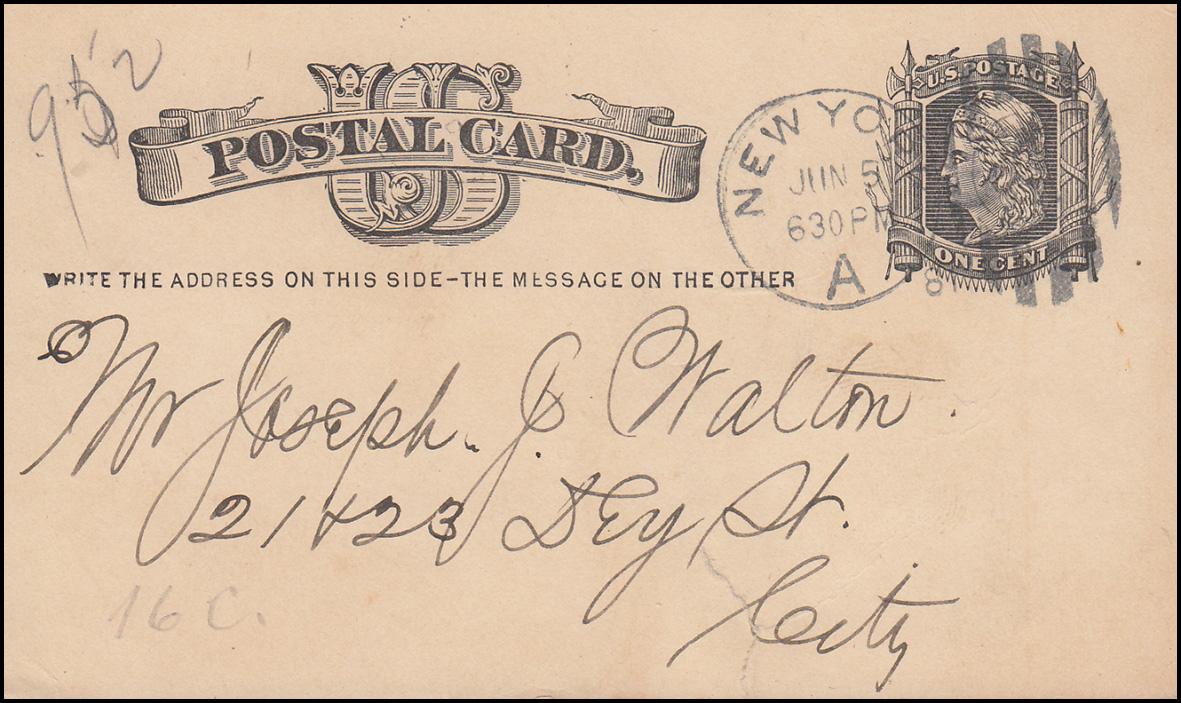 952
US
POSTAL CARD.
U.S. POSTAGE
ONE CENT
NEW YO
JUN 5
630PM
A
8
WRITE THE ADDRESS ON THIS SIDE-THE MESSAGE ON THE OTHER
Mr Joseph. J. Walton.
21 & 23 Dey St.
City
16 C.